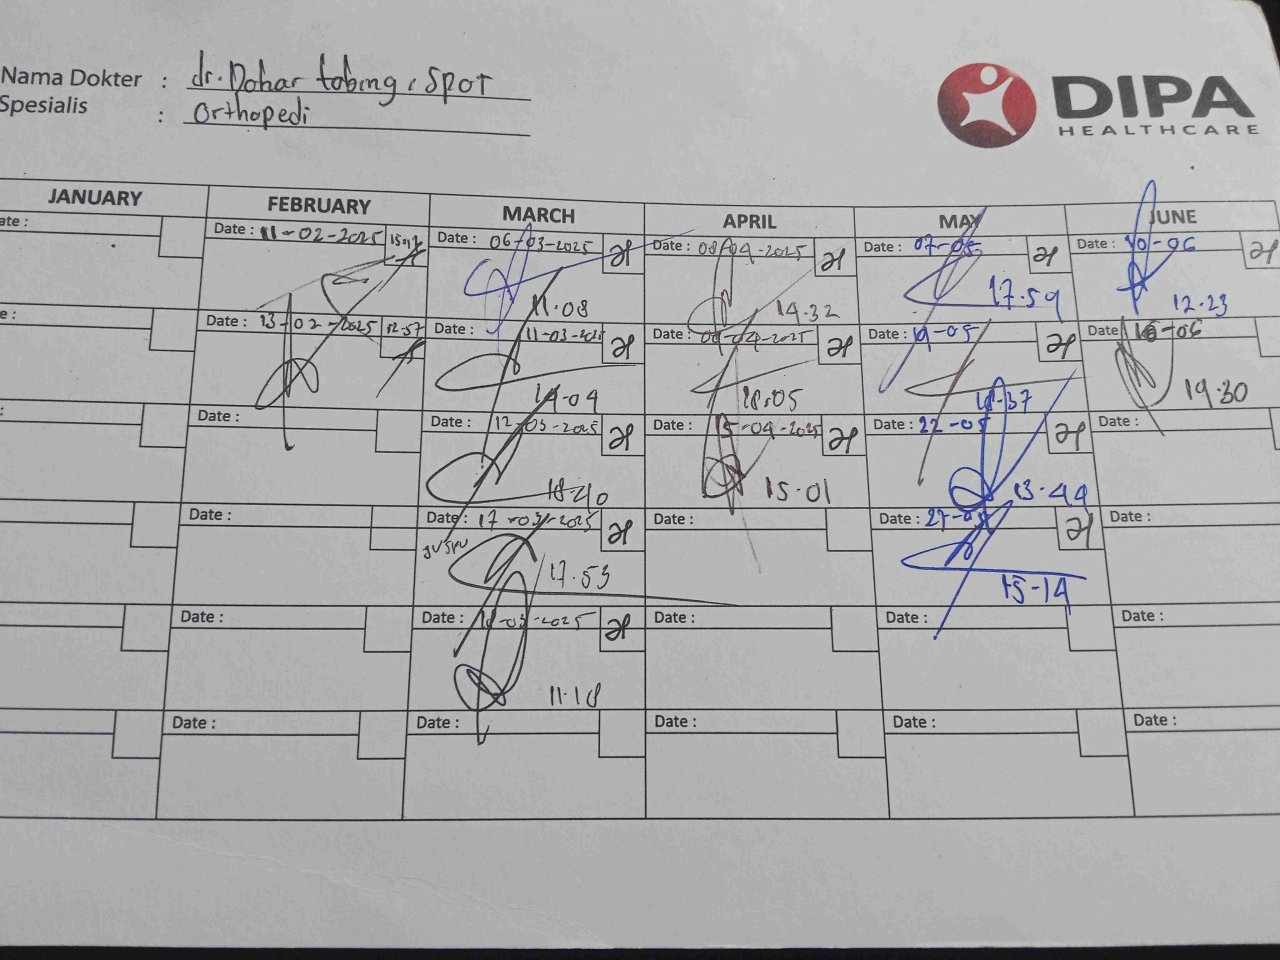 Nama Dokter : dr. Dohar tobing, SpOT
Spesialis : Orthopedi
DIPA
HEALTHCARE
JANUARY FEBRUARY MARCH APRIL MAY JUNE
ate : Date : 11-02-2025 15.17 Date : 06-03-2025 Date : 08-04-2025 Date : 07-05 Date : 10-06
11.08 14.32 17.59 12.23
e : Date : 13-02-2025 12.57 Date : 11-03-2025 Date : 09-04-2025 Date : 19-05 Date : 16-06
14.04 18.05 18.37 19.30
: Date : Date : 12-03-2025 Date : 15-04-2025 Date : 22-05 Date :
18.40 15.01 13-44
Date : Date : 17-03-2025 Date : Date : 27-05 Date :
17.53 15-14
Date : Date : 18-03-2025 Date : Date : Date :
11.18
Date : Date : Date : Date : Date :